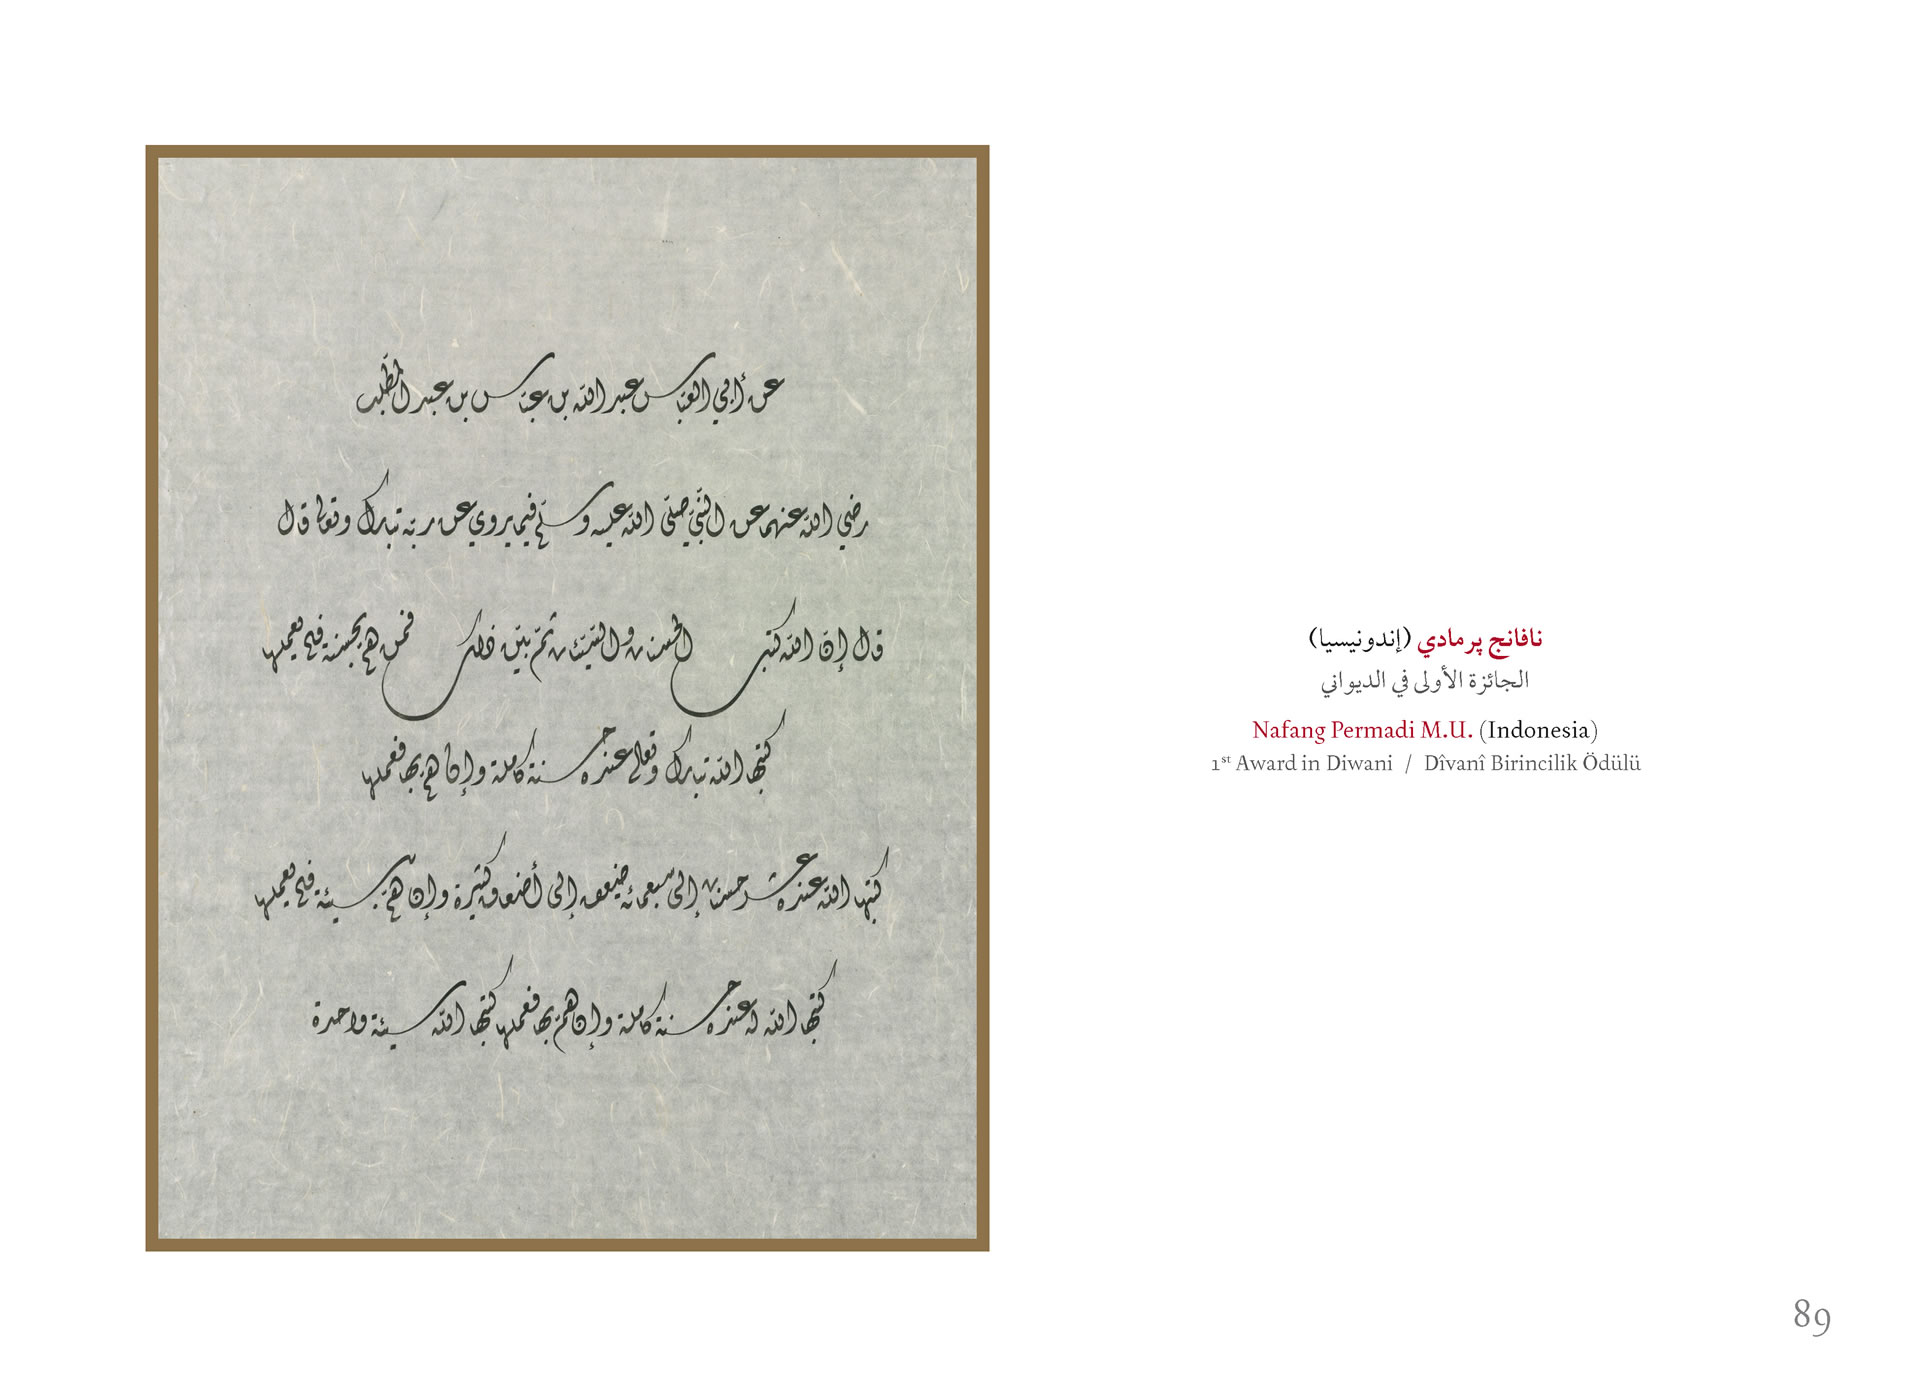 عن أبي العبّاس عبد الله بن عبّاس بن عبد المطّلب
رضي الله عنهما عن النّبيّ صلّى الله عليه وسلّم فيما يروي عن ربّه تبارك وتعالى قال
قال إنّ الله كتب الحسنات والسّيّئات ثمّ بيّن ذلك فمن همّ بحسنة فلم يعملها
كتبها الله تبارك وتعالى عنده حسنة كاملة وإن همّ بها فعملها
كتبها الله عنده عشر حسنات إلى سبعمائة ضعف إلى أضعاف كثيرة وإن همّ بسيئة فلم يعملها
كتبها الله له عنده حسنة كاملة وإن همّ بها فعملها كتبها الله سيئة واحدة
نافانج پرمادي (إندونيسيا)
الجائزة الأولى في الديواني
Nafang Permadi M.U. (Indonesia)
1st Award in Diwani / Dîvanî Birincilik Ödülü
89